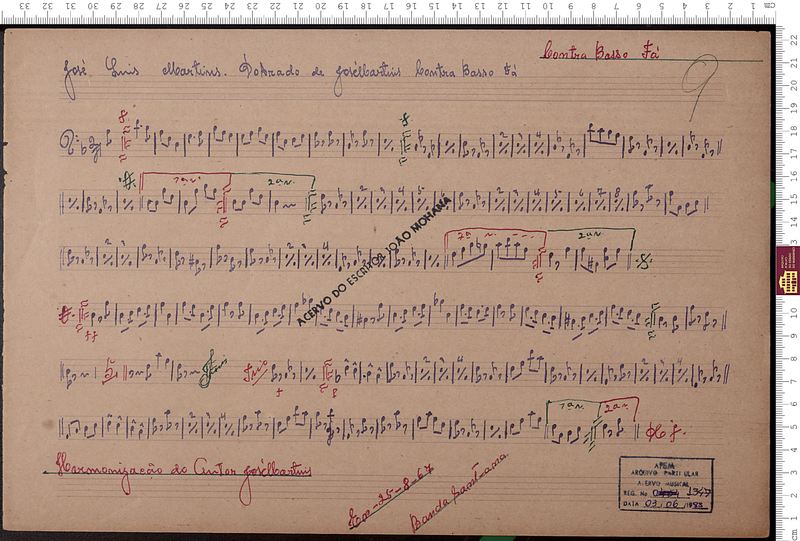 Contra Basso Fá
José Luis Martins. Dobrado de José Martins Contra Basso Fá
9
1ª v. 2ª v.
ACERVO DO ESCRITOR JOÃO MOHANA
1ª v. 2ª v.
Fim Trio
1ª v. 2ª v.
Harmonização do Autor José Martins
25-8-67
Banda
APEM
ARQUIVO PARTICULAR
ACERVO MUSICAL
REG. No 1347
DATA 03, 06, 1988